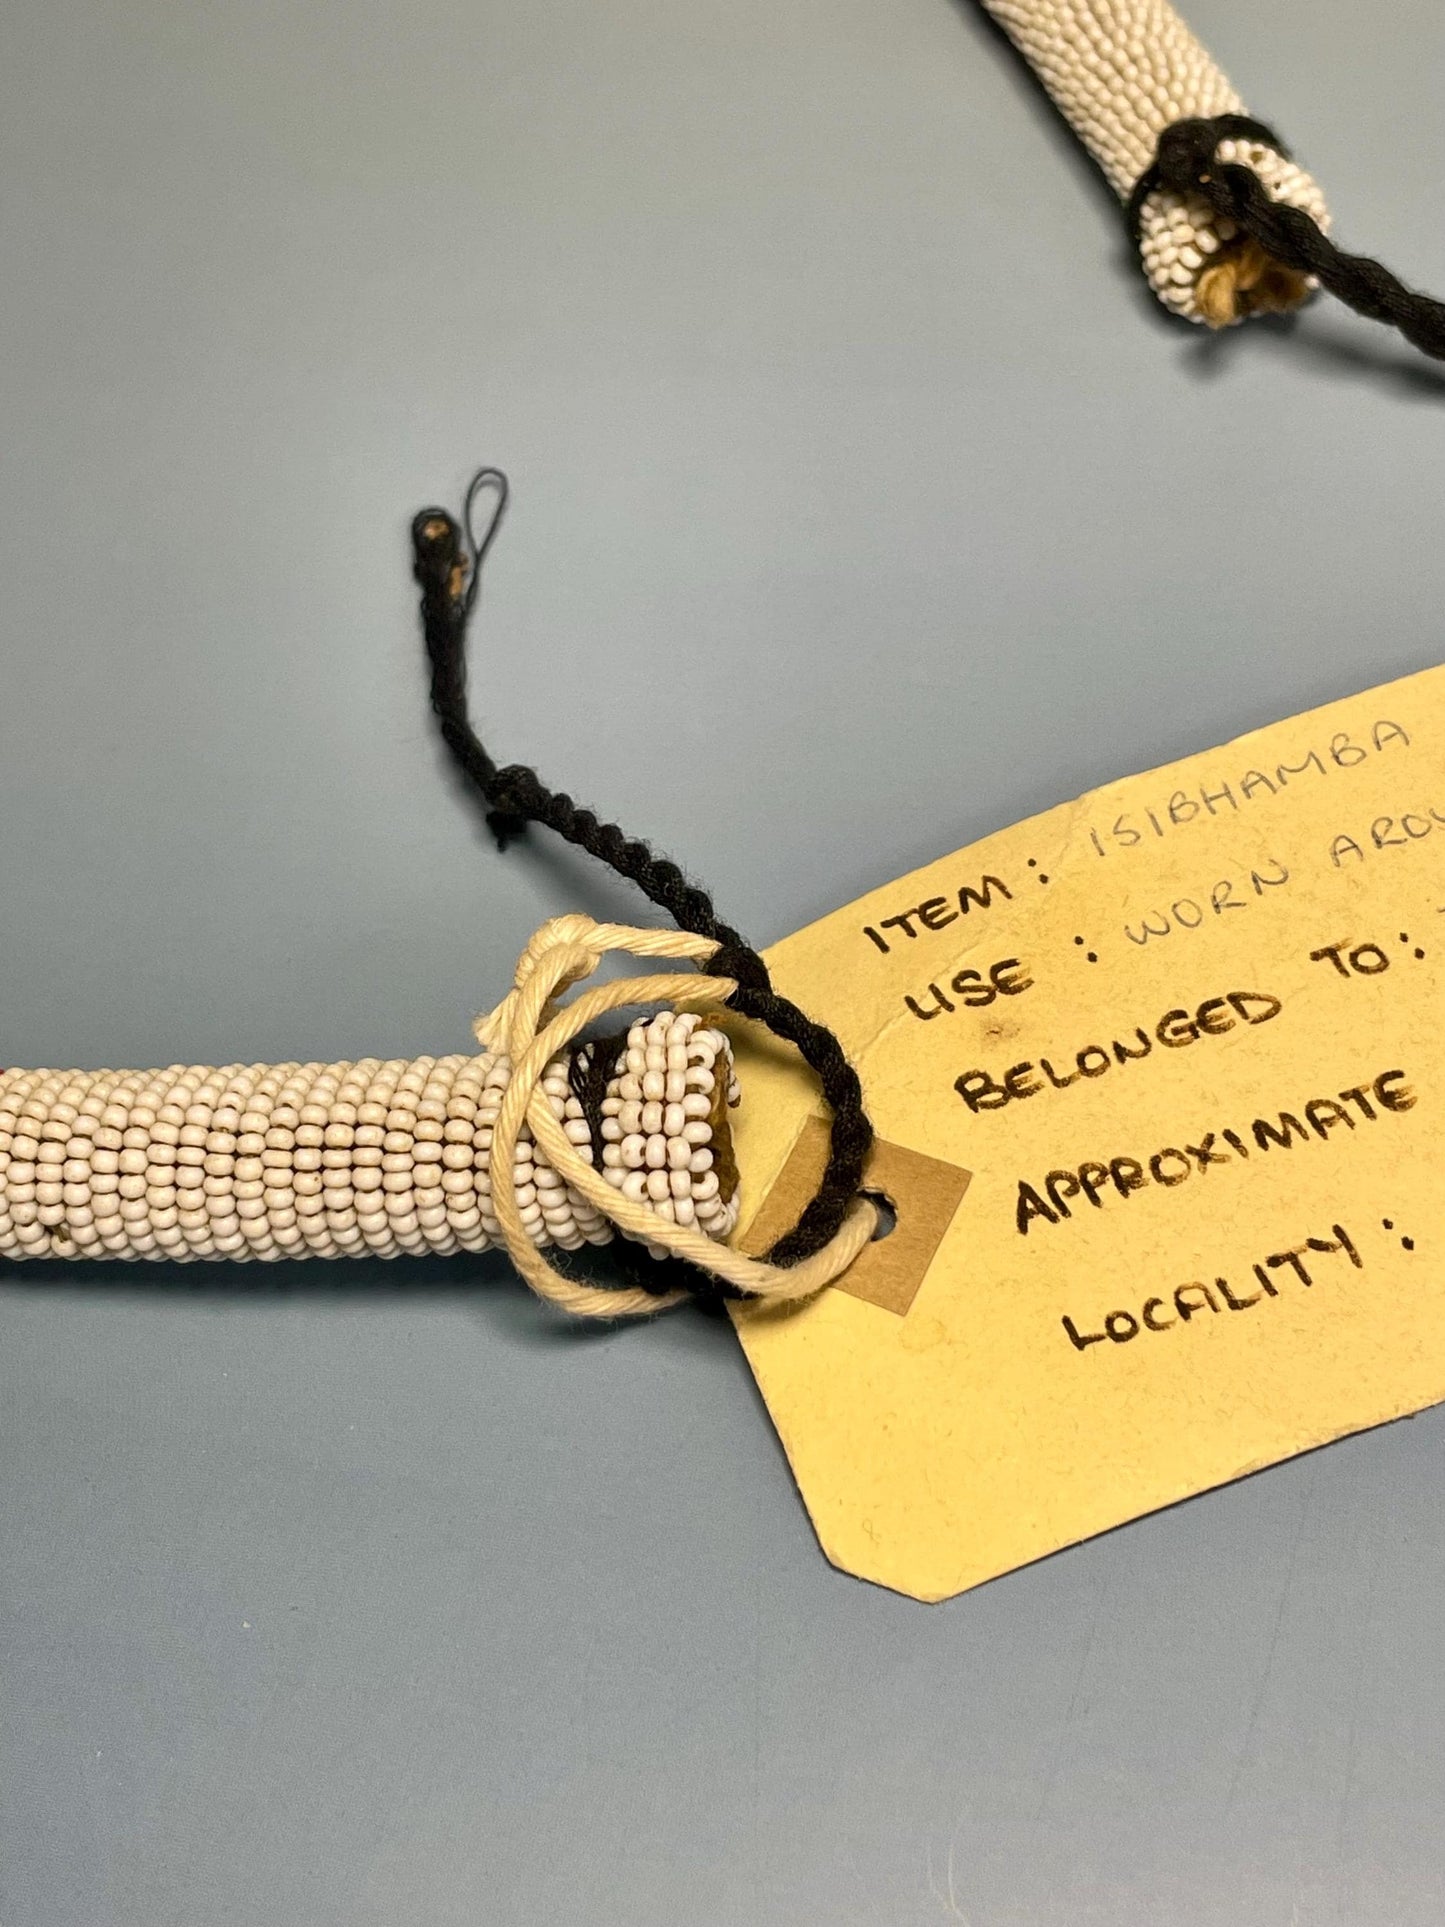 ITEM : ISIBHAMBA
USE : WORN
BELONGED TO :
APPROXIMATE
LOCALITY :